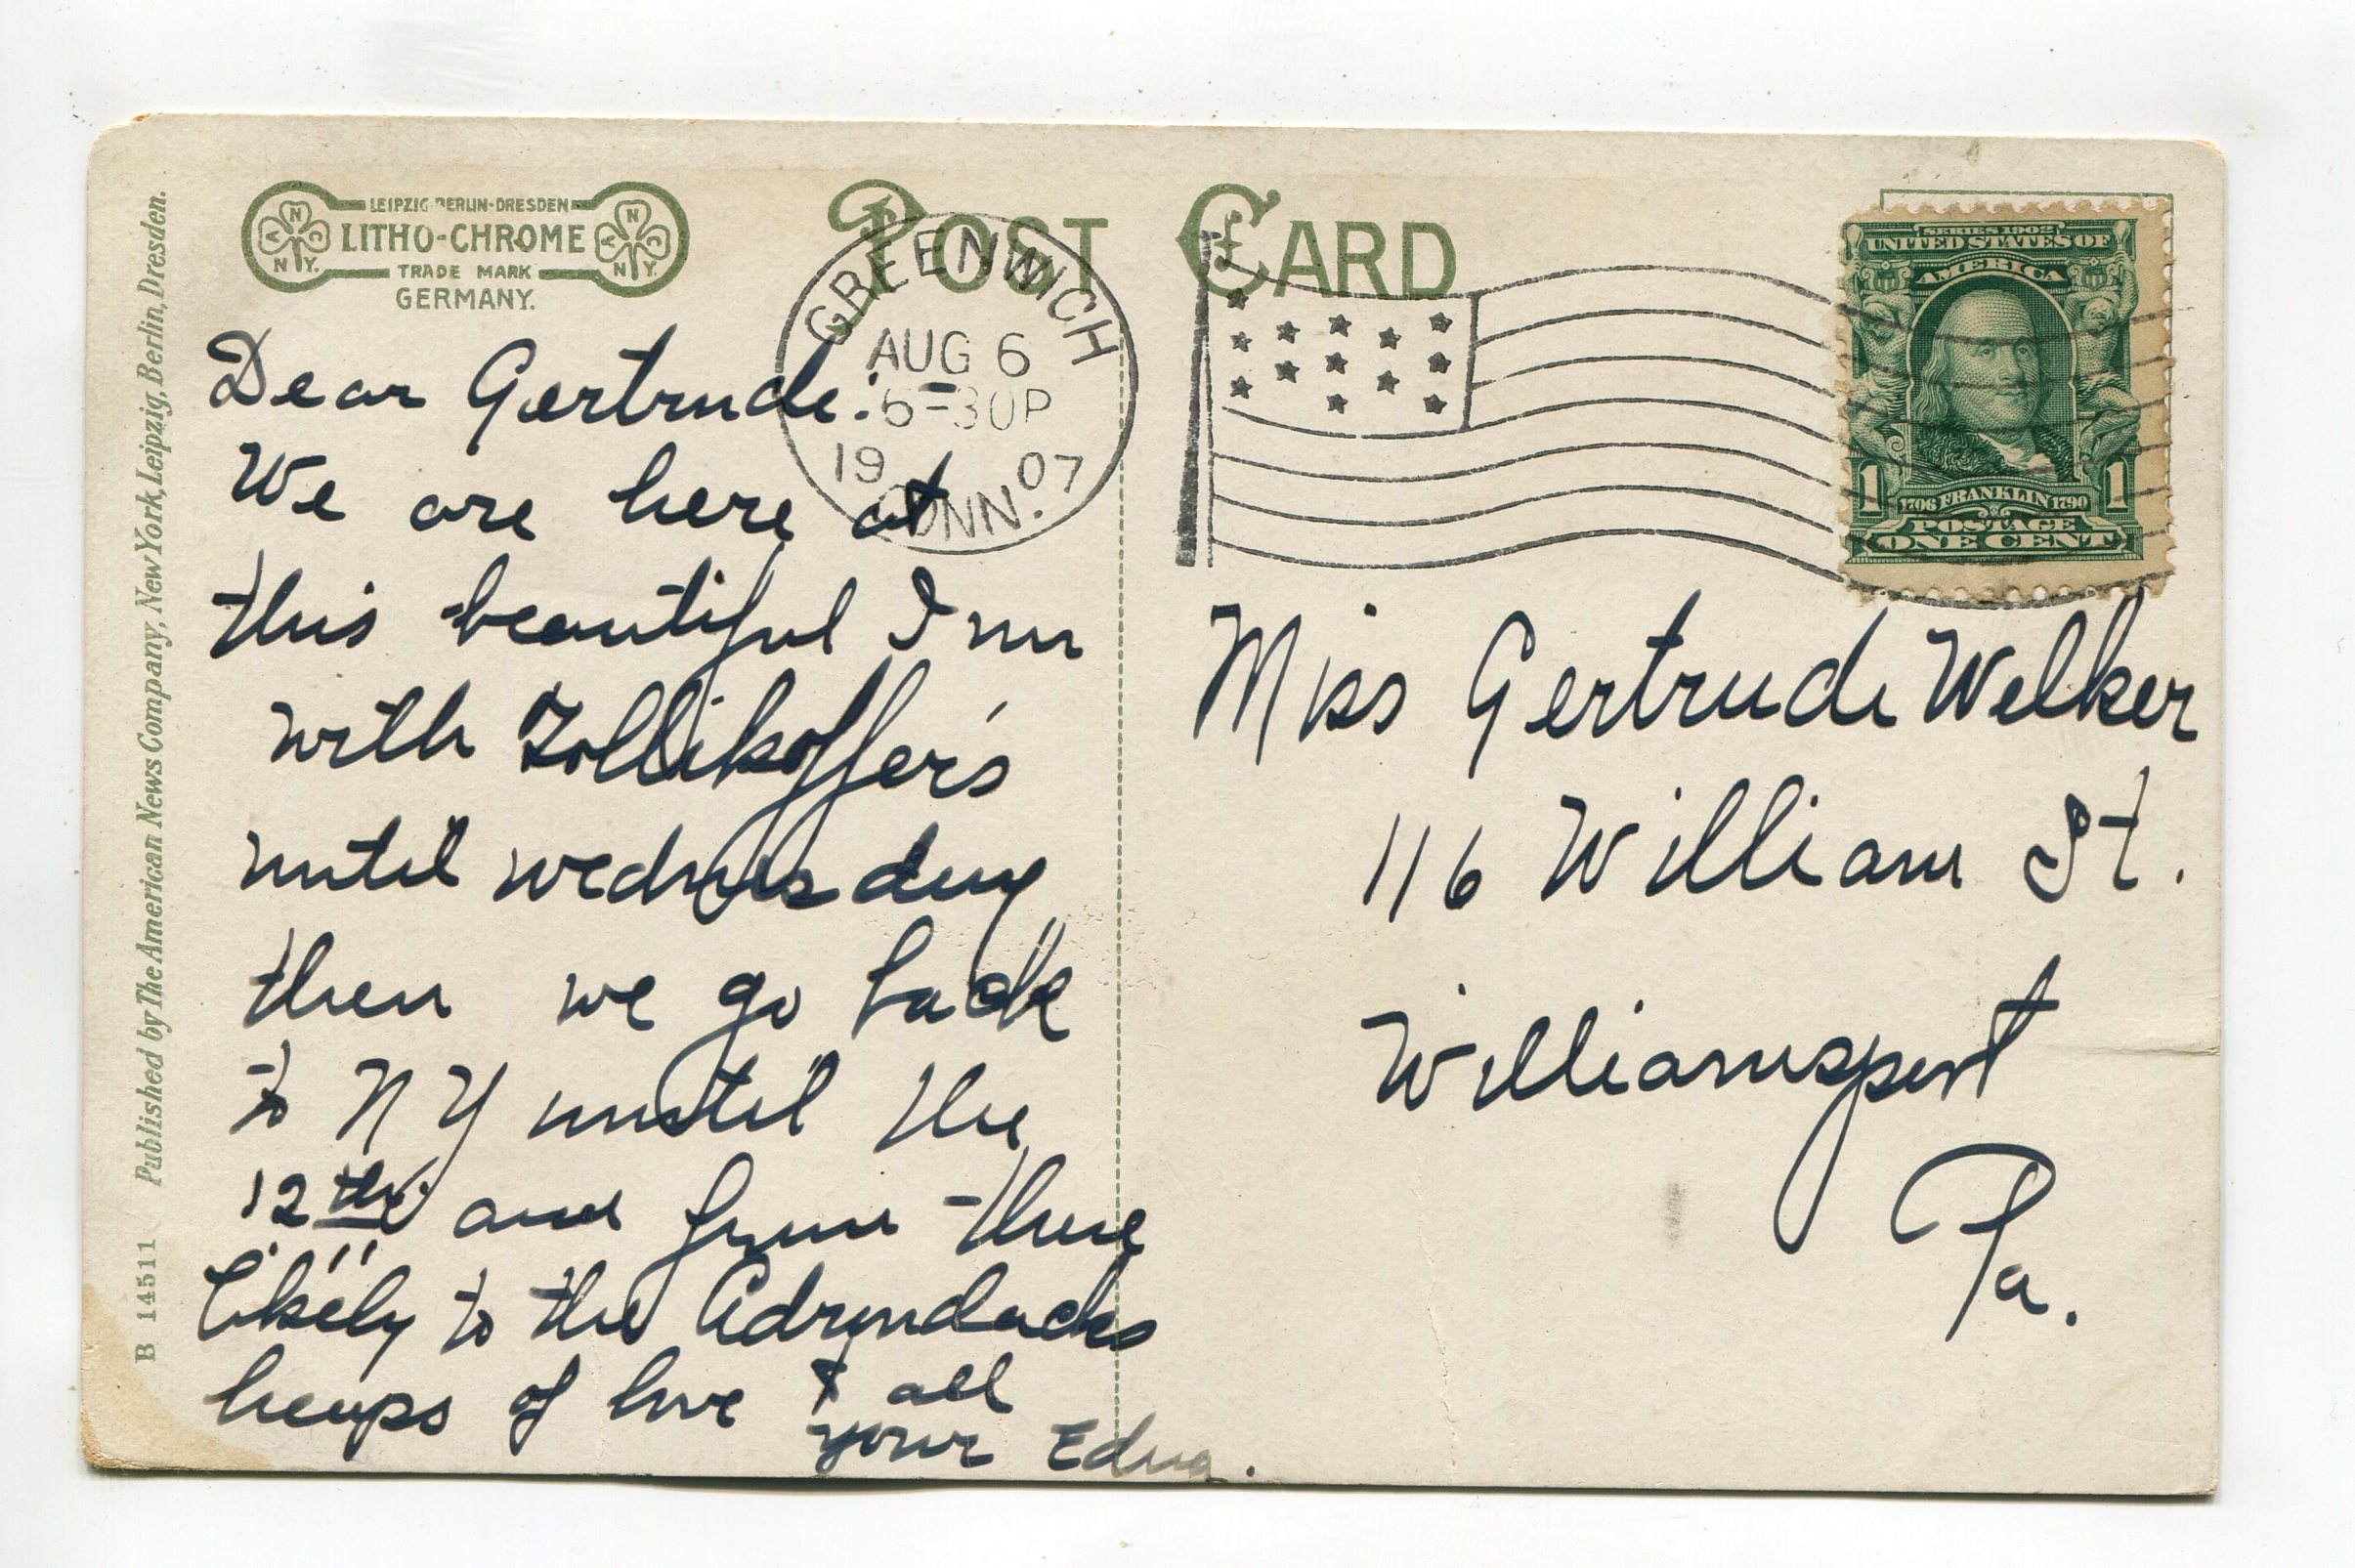 B 14511 Published by The American News Company, New York, Leipzig, Berlin, Dresden.
LEIPZIG BERLIN-DRESDEN
LITHO-CHROME
TRADE MARK
GERMANY.
A N C
N Y.
A N C
N Y.
POST CARD
GREENWICH
AUG 6
6-30P
1907
CONN.
SERIES 1902
UNITED STATES OF
AMERICA
1 1
1706 FRANKLIN 1790
POSTAGE
ONE CENT
Dear Gertrude:-
We are here at
this beautiful Inn
with Zollikoffer's
until wednesday
then we go back
to N Y until the
12th and from there
likely to the Adrondacks
heaps of love & all
your Edna.
Miss Gertrude Welker
116 William St.
Williamsport
Pa.